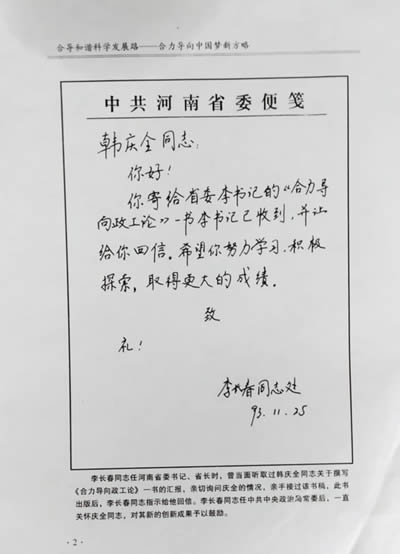 合导和谐科学发展路——合力导向中国梦新方略
中共河南省委便笺
韩庆全同志：
你好！
你寄给省委李书记的“合力导
向政工论》一书李书记已收到，并让
给你回信。希望你努力学习，积极
探索，取得更大的成绩。
致
礼！
李长春同志处
93.11.25
李长春同志任河南省委书记、省长时，曾当面听取过韩庆全同志关于撰写
《合力导向政工论》一书的汇报，亲切询问庆全的情况，亲手接过该书稿，此书
出版后，李长春同志指示给他回信。李长春同志任中共中央政治局常委后，一直
关怀庆全同志，对其新的创新成果予以鼓励。
· 2 ·